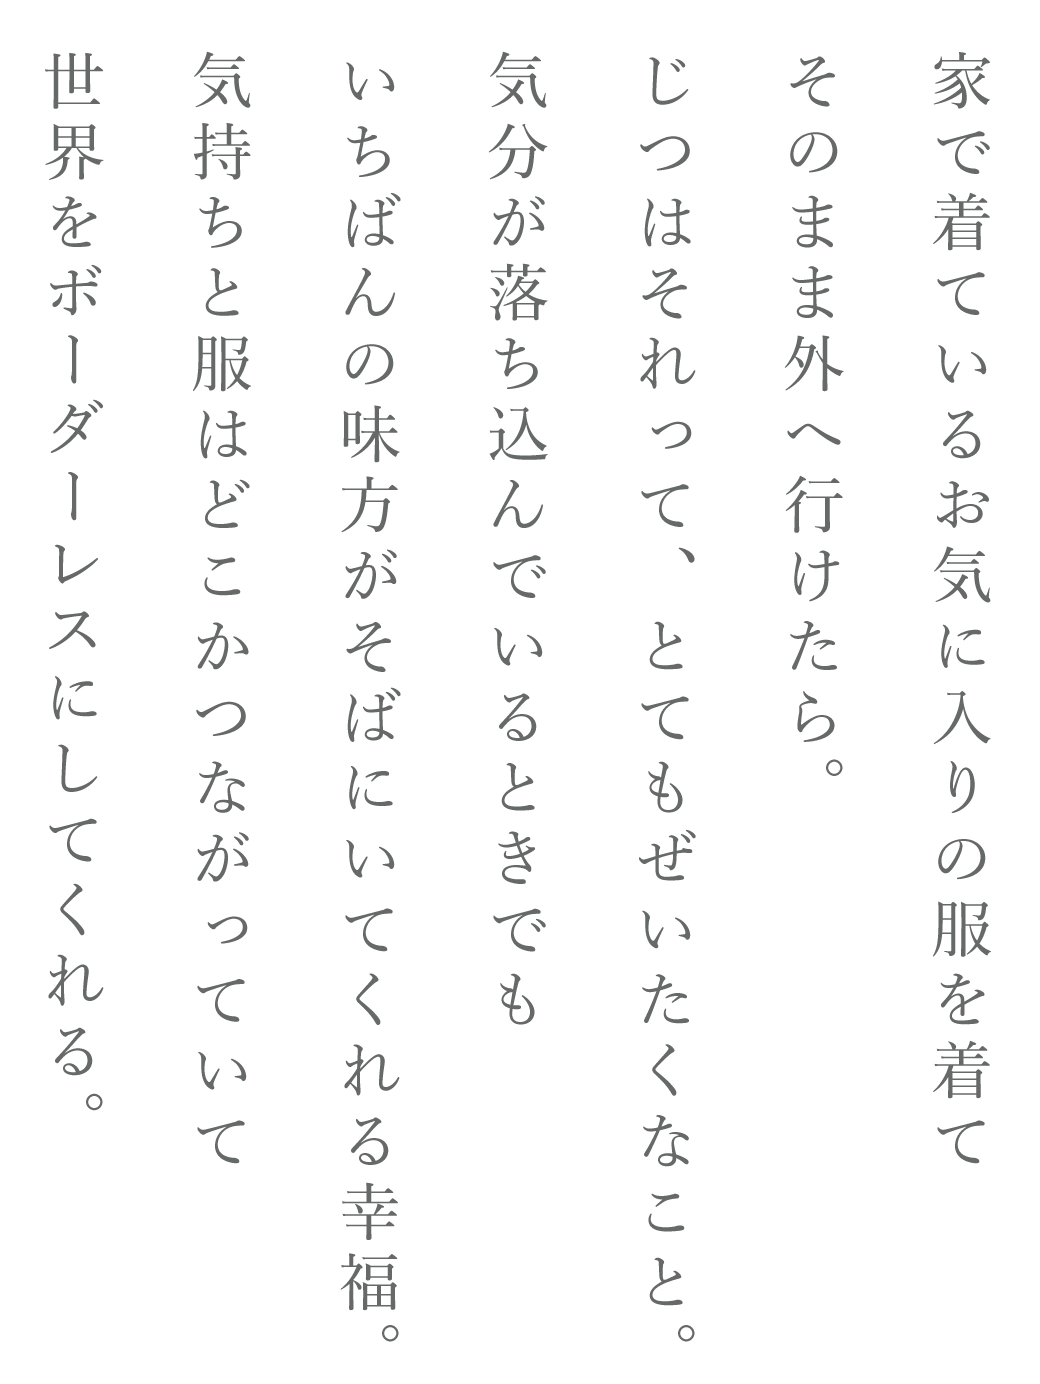 家で着ているお気に入りの服を着て
そのまま外へ行けたら。
じつはそれって、とてもぜいたくなこと。
気分が落ち込んでいるときでも
いちばんの味方がそばにいてくれる幸福。
気持ちと服はどこかつながっていて
世界をボーダーレスにしてくれる。